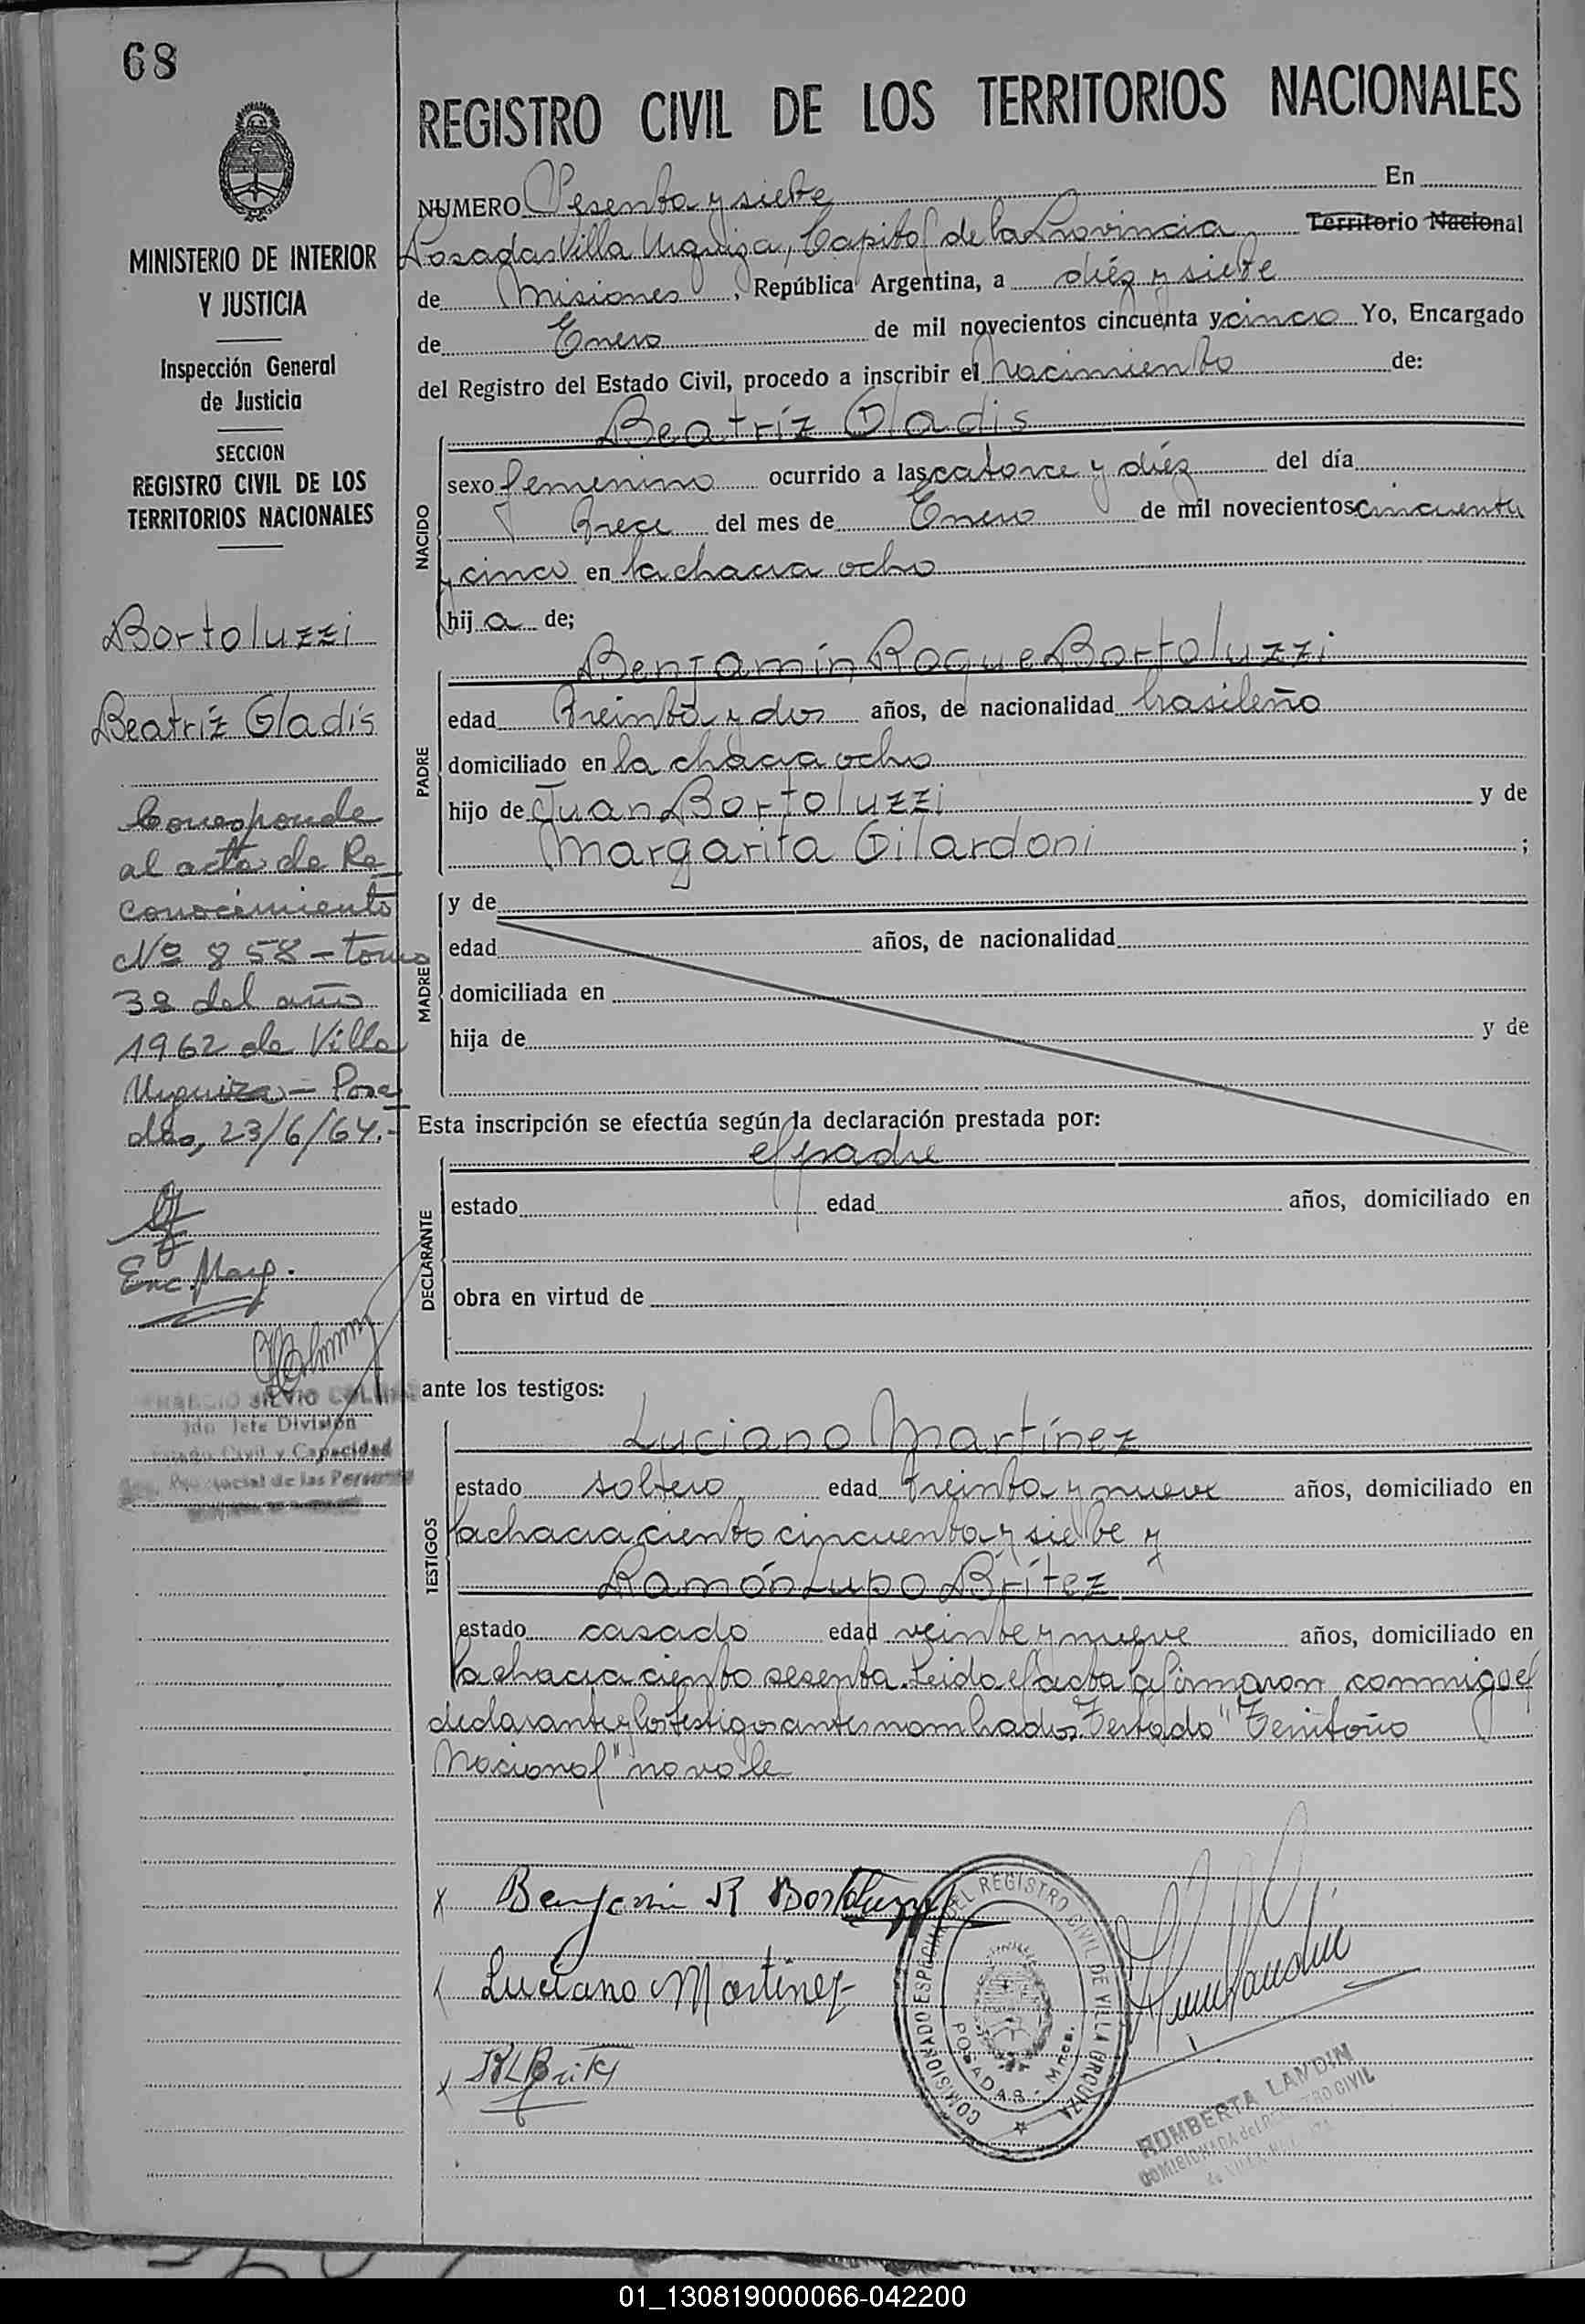 68
REGISTRO CIVIL DE LOS TERRITORIOS NACIONALES
MINISTERIO DE INTERIOR
Y JUSTICIA
Inspección General
de Justicia
SECCION
REGISTRO CIVIL DE LOS
TERRITORIOS NACIONALES
Bortoluzzi
Beatríz Gladis
Corresponde
al acta de Re
conocimiento
Nº 858 - tomo
3º del año
1962 de Villa
Urquiza - Posa
das, 23/6/64.-
Enc. Marg.
SILVIO
Jefe División
Civil y Capacidad
de las Personas
NUMERO Sesenta y siete En
Posadas Villa Urquiza, Capital de la Provincia Territorio Nacional
de Misiones, República Argentina, a diéz y siete
de Enero de mil novecientos cincuenta y cinco Yo, Encargado
del Registro del Estado Civil, procedo a inscribir el Nacimiento de:
NACIDO
Beatríz Gladis
sexo femenino ocurrido a las catorce y diéz del día
trece del mes de Enero de mil novecientos cincuenta
y cinco en la chacra ocho
hij a de;
PADRE
Benjamín Roque Bortoluzzi
edad treinta y dos años, de nacionalidad brasileño
domiciliado en la chacra ocho
hijo de Juan Bortoluzzi y de
Margarita Gilardoni ;
MADRE
y de
edad años, de nacionalidad
domiciliada en
hija de y de
Esta inscripción se efectúa según la declaración prestada por:
DECLARANTE
el padre
estado edad años, domiciliado en
obra en virtud de
ante los testigos:
TESTIGOS
Luciano Martínez
estado soltero edad treinta y nueve años, domiciliado en
la chacra ciento cincuenta y siete y
Ramón Lupo Brítez
estado casado edad veinte y nueve años, domiciliado en
la chacra ciento sesenta. Leida el acta la firmaron conmigo el
declarante y los testigos antes nombrados. Testado "Territorio
Nacional" no vale
x Benjamin R Bortoluzzi
Luciano Martinez
x R L Britez
COMISIONADO ESPECIAL DEL REGISTRO CIVIL DE VILLA URQUIZA
POSADAS - Mnes.
ROMBERTA LANDIN
COMISIONADA del REGISTRO CIVIL
01_130819000066-042200